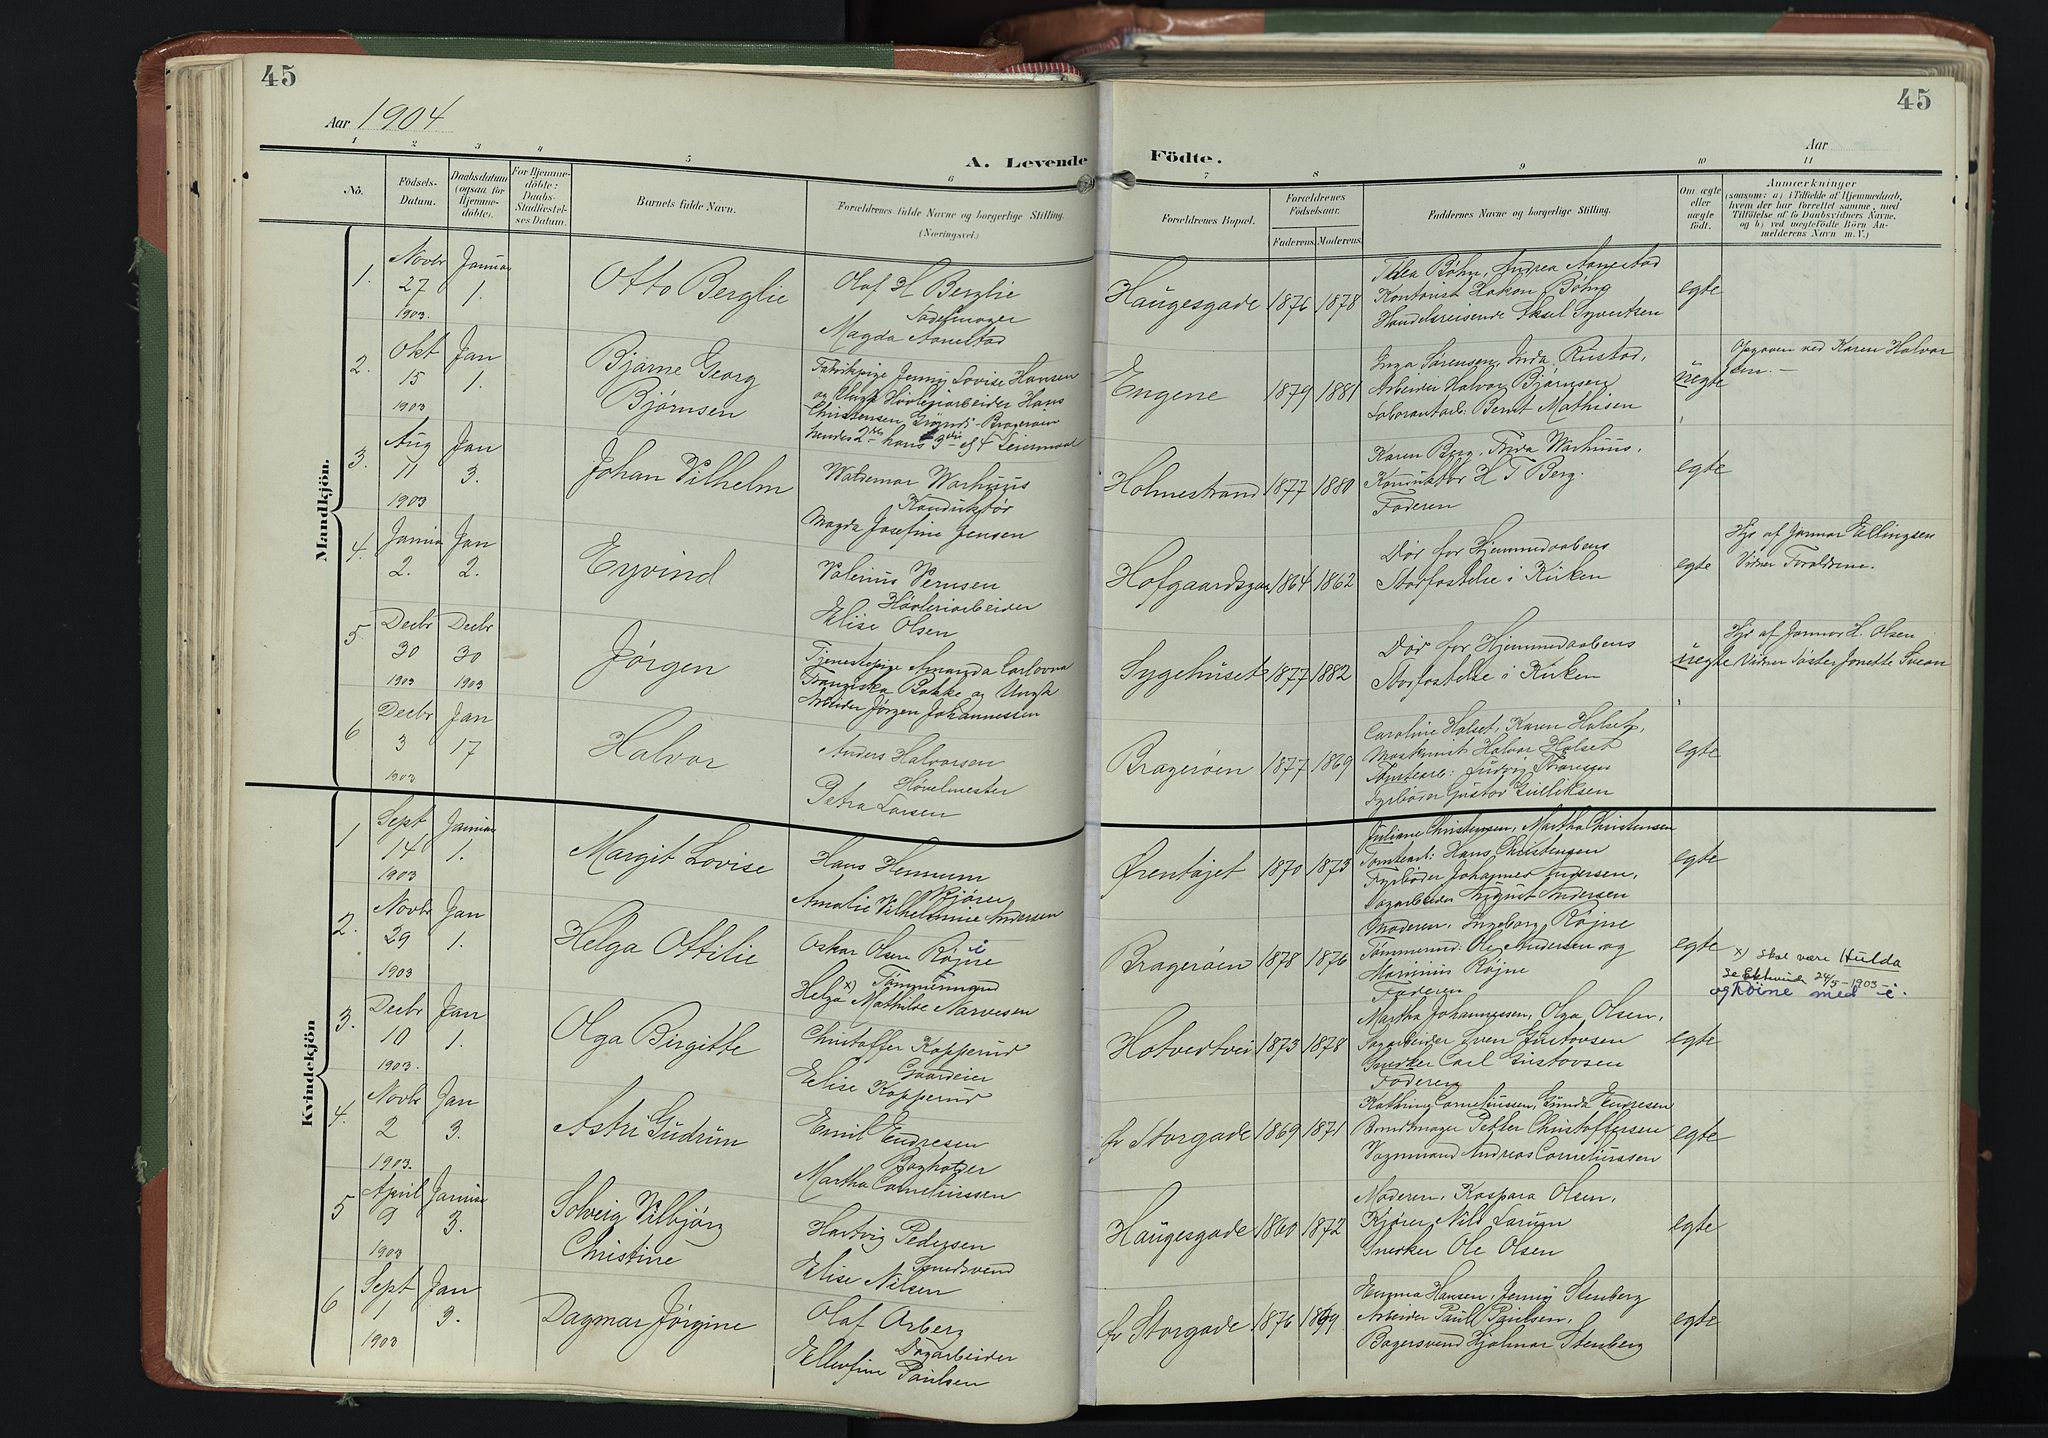 45
45
Aar 1904
Aar
A. Levende Födte.
1 2 3 4 5 6 7 8 9 10 11
No.
Födsels-
Datum.
Daabsdatum
(ogsaa for
Hjemme-
döbte).
For Hjemme-
döbte:
Daabs-
Stadfæstel-
ses Datum.
Barnets fulde Navn.
Forældrenes fulde Navne og borgerlige Stilling.
(Næringsvei.)
Forældrenes Bopæl.
Forældrenes
Födselsaar.
Faderens. Moderens.
Faddernes Navne og borgerlige Stilling.
Om ægte
eller
uægte
født.
Anmærkninger
(saasom: a) i Tilfælde af Hjemmedaab,
hvem der har forrettet samme, med
Tilföielse af to Daabsvidners Navne,
og b) ved uægtefödte Börn An-
melderens Navn m. V.)
Mandkjön.
1.
Novbr
27
1903.
Januar
1.
Otto Berglie
Olaf H Berglie
Sadelmager
Magda Aanestad
Haugesgade
1876 1878
Thea Bøhn, Andrea Aanestad
Kontorist Hakon Bøhn
Handelsreisende Aksel Syvertsen
egte
2.
Okt
15
1903
Jan
1.
Bjarne Georg
Bjørnsen
Fabrikpige Jenny Lovise Hansen
og Ungk. Høvleriarbeider Hans
Christensen, Grønd: Bragerøen
hendes 2det hans 3die og 4 Leiermaal
Engene
1879 1881
Inga Sørensen, Inda Rustad,
Arbeider Halvor Bjørnsen
Laborantarb: Bernt Mathisen
uegte
Opgaven ved Karen Halvor
sen.
3.
Aug
11
1903
Jan
3.
Johan Vilhelm
Waldemar Warhuus
Konduktør
Magda Josefine Jensen
Holmestrand
1877 1880
Karen Berg, Frida Warhuus,
Konduktør H T Berg.
Faderen
egte
4.
Januar
2.
Jan
2.
Eyvind
Valerius Vernsen
Høvleriarbeider
Elise Olsen
Hofgaardsgade
1864 1862
Dør før Hjemmedaabens
Stadfæstelse i Kirken
egte
Hjr af Jonmor Ellingsen
Vidner Forældrene.
5.
Decbr
30
1903
Decbr
30
1903
Jørgen
Tjenestepige Amanda Carlovna
Franziska Bakke og Ungk
Arbeider Jørgen Johannessen
Sygehuset
1877 1882
Dør før Hjemmedaabens
Stadfæstelse i Kirken
uegte
Hjr af Jonmor H. Olsen
Vidner Søster Jonette Svean
6
Decbr
3
1903
Jan
17
Halvor
Anders Halvorsen
Høvelmester
Petra Larsen
Bragerøen
1877 1869
Caroline Holset, Karen Holset,
Maskinist Halvor Holset
Tomtearb: Ludvig Thoresen
Fyrbøder Gustav Gulliksen
egte
Kvindekjön
1
Sept
14
1903
Januar
1.
Margit Lovise
Hans Hennum
Kjører
Amalie Vilhelmine Andersen
Ørentøjet
1870 1873
Juliane Christensen, Martha Christensen
Tomtearb: Hans Christensen
Fyrbøder Johannes Andersen,
Dagarbeider August Andersen
egte
2.
Novbr
29
1903
Jan
1.
Helga Ottilie
Oskar Olsen Røjne
i
Tømmermand
Helga x) Mathilde Narvesen
Bragerøen
1878 1876
Moderen, Ingeborg Røjne
Tømmermd: Ole Andersen og
Marinius Røjne
Faderen
egte
x) skal være Hulda
24/5-1903-
og Röine med i.
3.
Decbr
10
1903.
Jan
1.
Olga Birgitte
Christoffer Kopperud
Gaardeier
Elise Kopperud
Hotvedtvei
1873 1878
Martha Johannessen, Olga Olsen,
Sagarbeider Sven Gustavsen
Snedker Carl Gustavsen
Faderen
egte
4.
Novbr
2
1903.
Jan
3.
Astri Gudrun
Emil Endresen
Bogholder
Martha Corneliussen
fv Storgade
1869 1871
Kathrine Corneliussen, Gunda Endresen
Bundtmager Petter Christoffersen
Vognmand Andreas Corneliussen
egte
5
April
9
1903
Januar
3.
Solveig Vilbjørg
Christine
Hartvig Pedersen
Smedsvend
Elise Nilsen
Haugesgade
1860 1872
Moderen, Kaspara Olsen,
Kjører Nils Larsen
Snedker Ole Olsen
egte
6
Sept
1
1903
Jan
3.
Dagmar Jørgine
Olaf Arberg
Dagarbeider
Ellevine Paulsen
fv Storgade
1876 1879
Emma Hansen, Jenny Stenberg
Arbeider Paul Paulsen,
Bagersvend Hjalmar Stenberg
egte